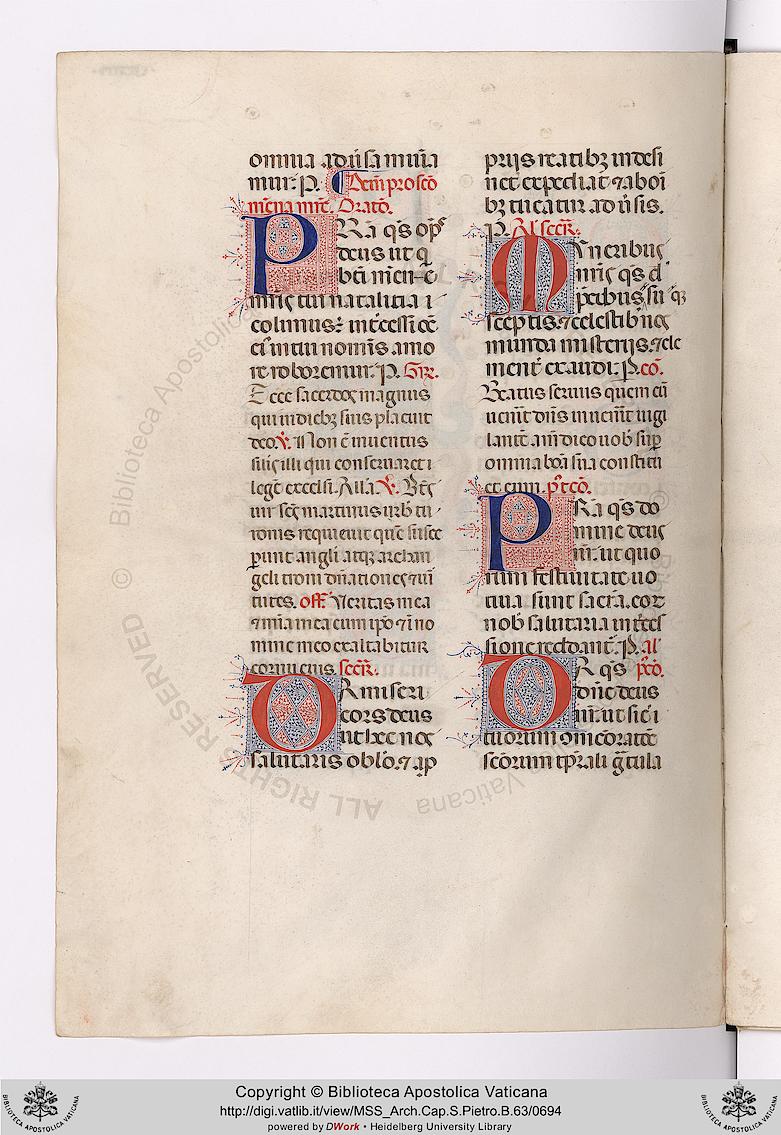 omnia adu̾sa muniamur. P. Item pro scō
menna mr̄e. Oratō.
PR̄a q̄s op̄s
deus ut q
bt̄i men̄e
mr̄is tui natalitia
colimus: int̄cessiōē
ei⁹ in tui nominis amo
re roboremur. P. Gr̄.
Ecce sacerdos magnus
qui in dieb₃ suis placuit
deo. V̄. Non ē inuentus
silis illi qui conseruaret
legē excelsi. Alla. V̄. Bt̄s
uir sc̄s martinus urb tu
ronis requieuit quē susce
perunt angli atq₃ archan
geli troni dn̄ationes
tutes. off. Veritas mea
⁊ mīa mea cum ip̄o ⁊ ī no
mine meo exaltabitur
cornu eius sec̄r.
OR miseri
cors deus
ut hec nos
salutaris obl̄o ⁊ a
priis reatib₃ indesi
net expediat ⁊ ab oī
b₃ tueatur adu̾sis.
P. Al secr̄.
Muneribus
nr̄is q̄s d̄
p̄cibus
sceptis. ⁊ celestib nos
munda misteriis. ⁊ cle
ment̄ exaudi. P. cō.
Beatus seruus quem cū
uen̄it dn̄s inuen̄it uigi
lantē am̄ dico uob sup̄
omnia boā sua constitu
et eum. p̄t cō.
PR̄a q̄s do
mine deus
nr̄. ut quo
rum festiuitate uo
tiua sunt sacr̄a. eor
nob salutaria int̄ces
sione reddant̄. P. al
OR q̄s p̄cō.
dn̄e deus
nr̄. ut sic
tuorum cōmemoratōe
sc̄orum tp̄rali gr̄tula
Copyright © Biblioteca Apostolica Vaticana
http://digi.vatlib.it/view/MSS_Arch.Cap.S.Pietro.B.63/0694
powered by DWork • Heidelberg University Library
Biblioteca Apostolica Vaticana
© ALL RIGHTS RESERVED